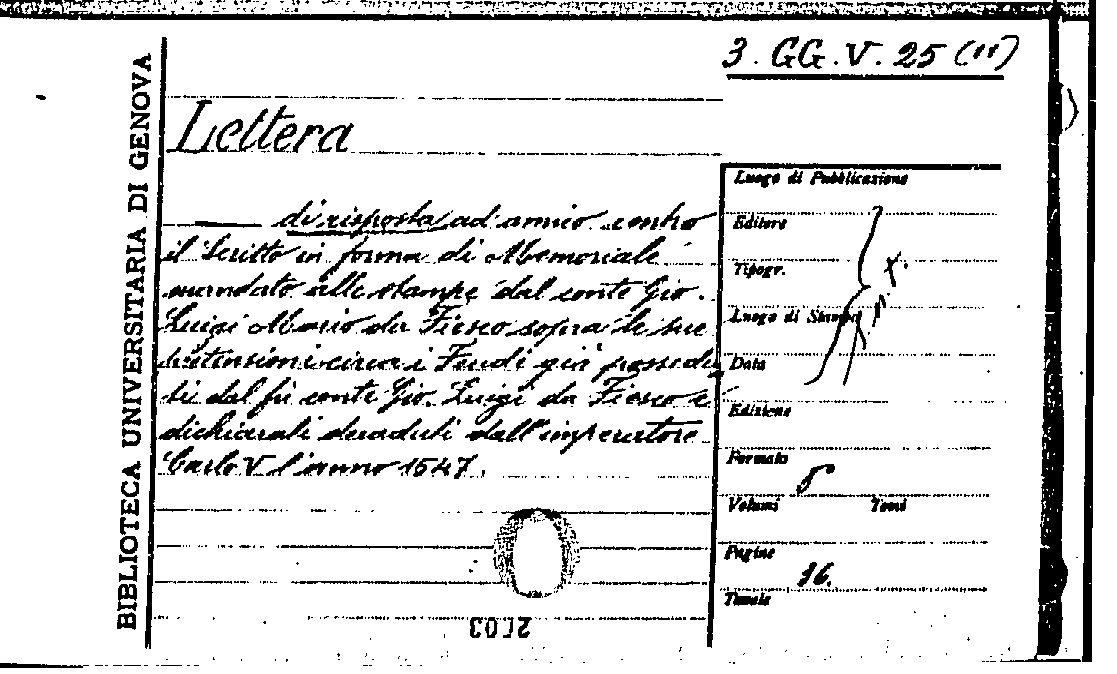 3. GG. V. 25 (11)
BIBLIOTECA UNIVERSITARIA DI GENOVA
Lettera
di risposta ad amico contro
il Scritto in forma di Memoriale
mandato alle stampe dal conte Gio.
Luigi Mario da Fiesco sopra le sue
pretensioni circa i Feudi già possedu
ti dal fù conte Gio. Luigi da Fiesco e
dichiarati decaduti dall'imperatore
Carlo V l'anno 1547.
Luogo di Pubblicazione
Editore
Tipogr.
Luogo di Stampa
Data
Edizione
Formato 8
Volumi Tomi
Pagine 16.
Tavole